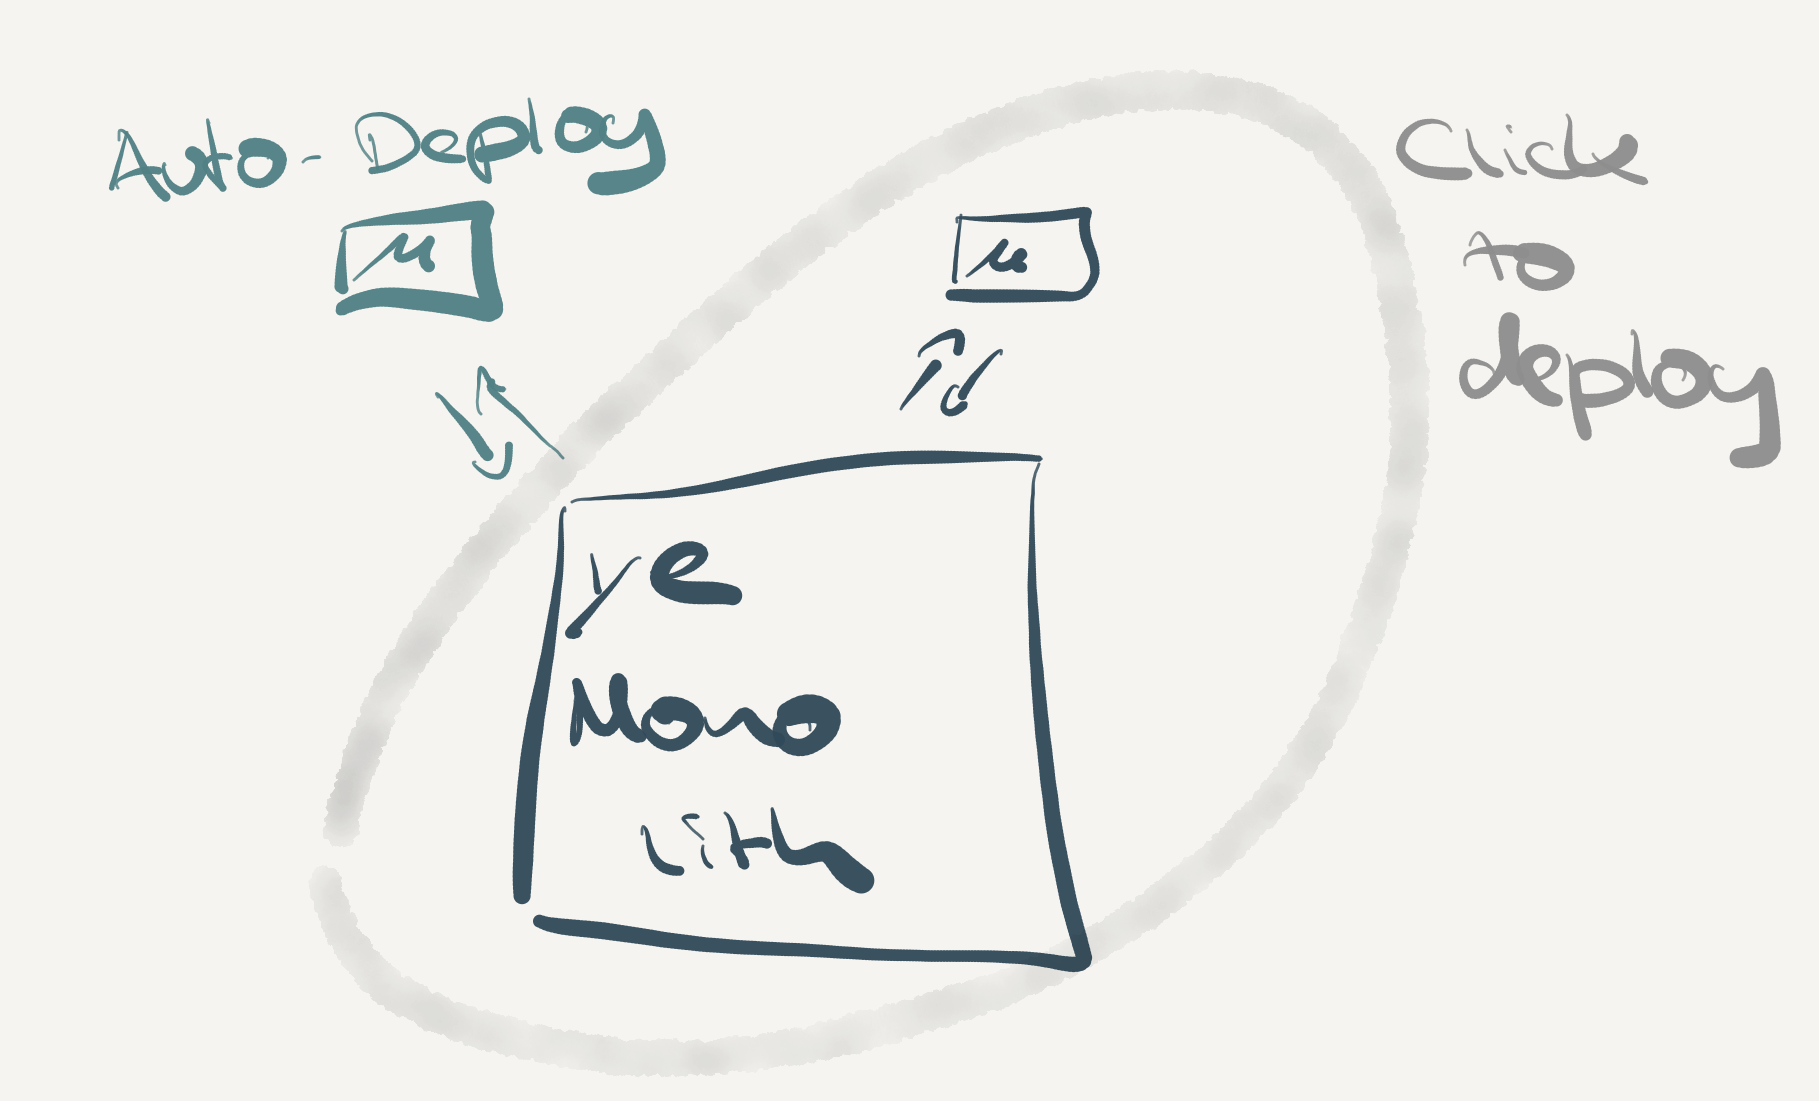 Auto-Deploy
μ
μ
Click
to
deploy
ye
Mono
lith